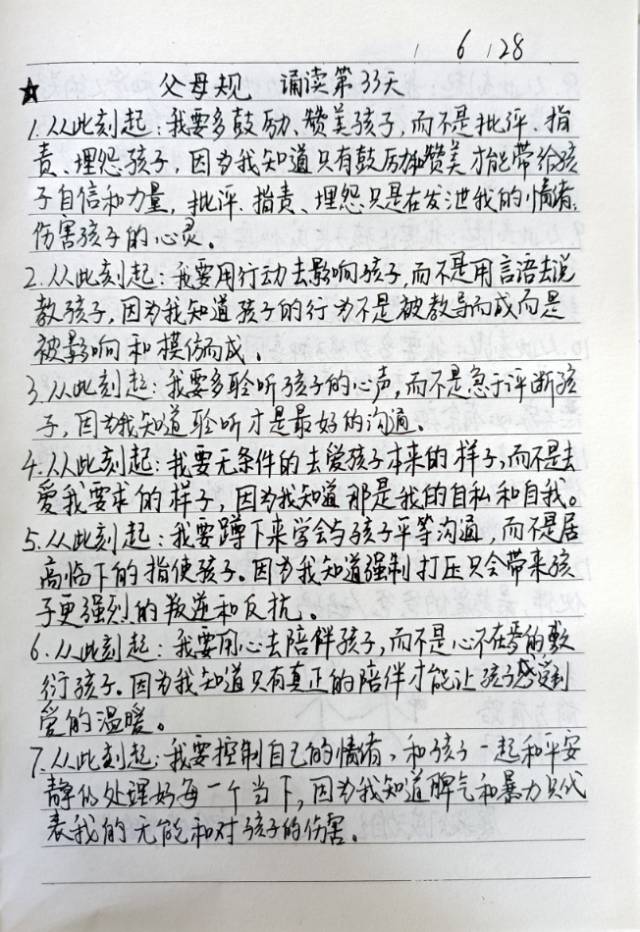 6 28
★ 父母规 诵读第33天
1.从此刻起:我要多鼓励、赞美孩子,而不是批评、指
责、埋怨孩子,因为我知道只有鼓励和赞美才能带给孩
子自信和力量,批评、指责、埋怨只是在发泄我的情绪,
伤害孩子的心灵。
2.从此刻起:我要用行动去影响孩子,而不是用言語去说
教孩子,因为我知道孩子的行为不是被教导而成而是
被影响和模仿而成。
3.从此刻起:我要多聆听孩子的心声,而不是急于评断孩
子,因为我知道聆听才是最好的沟通。
4.从从此刻起:我要无条件的去爱孩子本来的样子,而不是去
爱我要求的样子,因为我知道那是我的自私和自我。
5.从此刻起:我要蹲下来学会与孩子平等沟通,而不是居
高临下的指使孩子。因为我知道强制打压只会带来孩
子更强烈的叛逆和反抗。
6.从此刻起:我要用心去陪伴孩子,而不是心不在焉的敷
衍孩子。因为我知道只有真正的陪伴才能让孩子感受到
爱的温暖。
7.从此刻起:我要控制自己的情绪,和孩子一起和平安
静的处理好每一个当下,因为我知道脾气和暴力只代
表我的无能和对孩子的伤害。